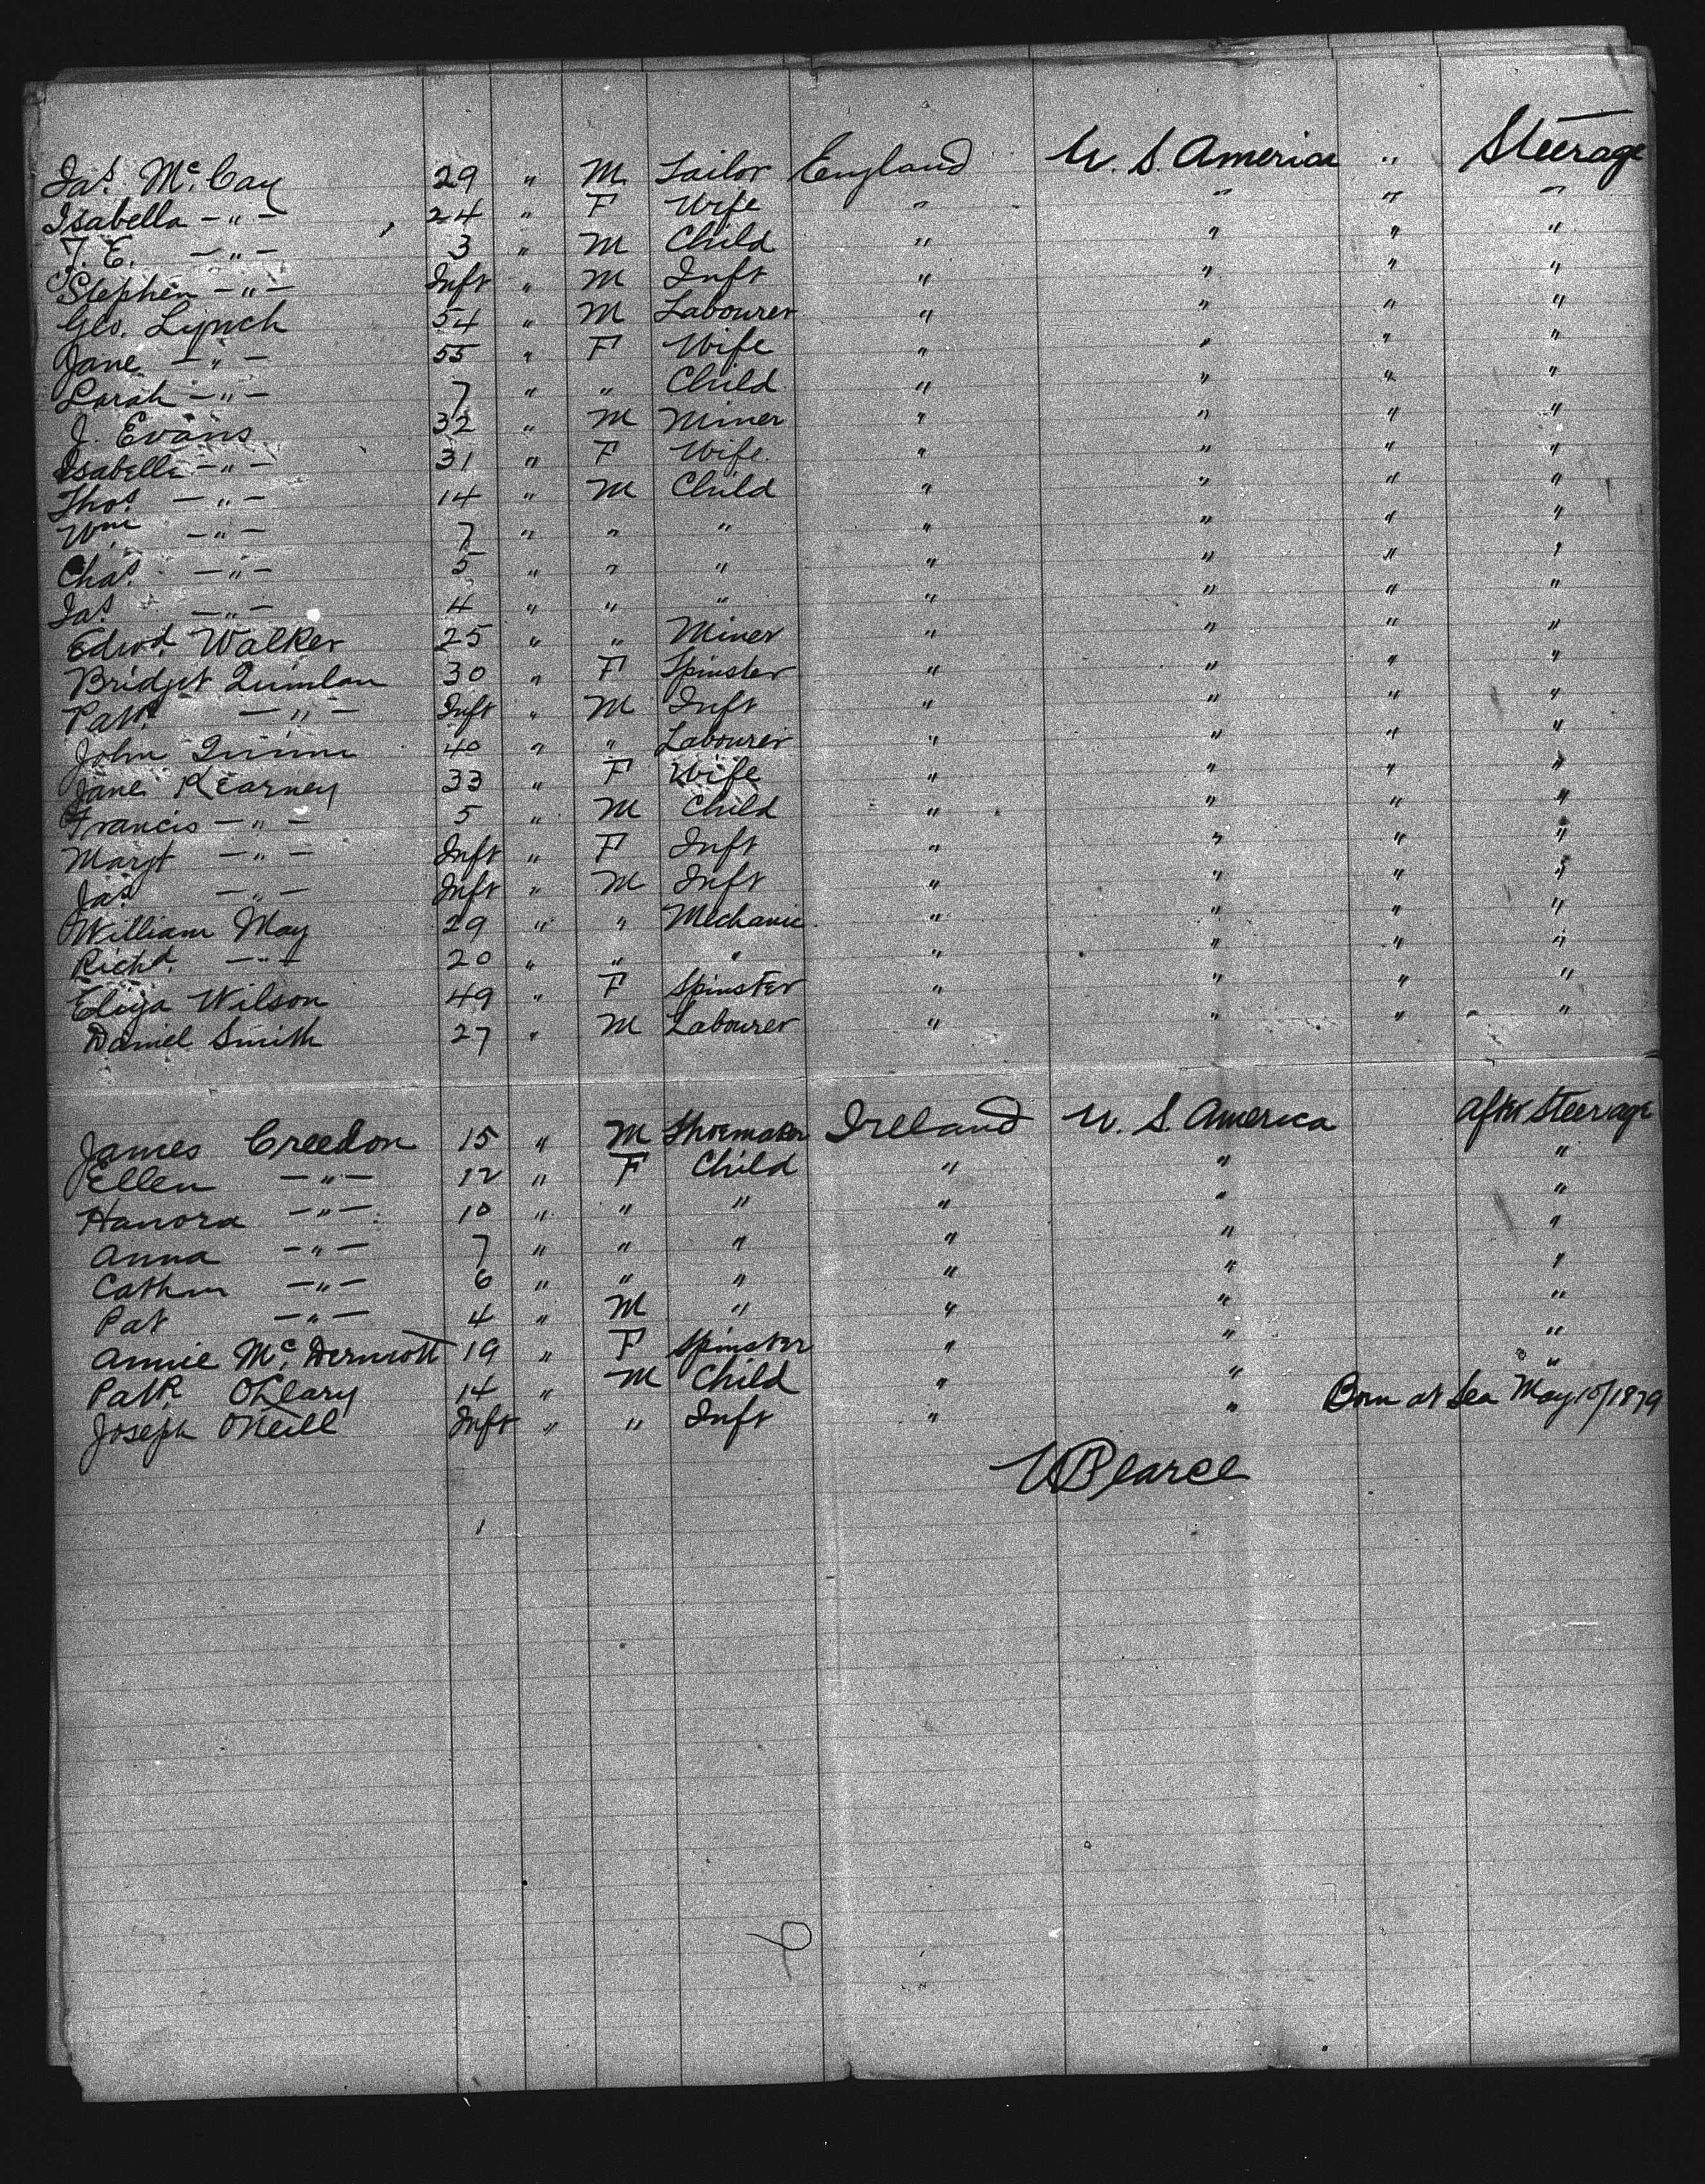 Jas. Mc.Cay 29 " M Tailor England U. S. America " Steerage
Isabella -"- 24 " F Wife " " " "
J. E. -"- 3 " M Child " " " "
Stephen -"- Inft " M Inft " " " "
Geo. Lynch 54 " M Labourer " " " "
Jane -"- 55 " F Wife " " " "
Sarah -"- 7 " " Child " " " "
J. Evans 32 " M Miner " " " "
Isabella -"- 31 " F Wife " " " "
Thos. -"- 14 " M Child " " " "
Wm. -"- 7 " " " " " " "
Chas. -"- 5 " " " " " " "
Jas. -"- 4 " " " " " " "
Edwd. Walker 25 " " Miner " " " "
Bridget Quinlan 30 " F Spinster " " " "
Patk. -"- Inft " M Inft " " " "
John Quinn 40 " " Labourer " " " "
Jane Kearney 33 " F Wife " " " "
Francis -"- 5 " M Child " " " "
Margt -"- Inft " F Inft " " " "
Jas. -"- Inft " M Inft " " " "
William May 29 " " Mechanic " " " "
Richd. -"- 20 " " " " " " "
Eliza Wilson 49 " F Spinster " " " "
Daniel Smith 27 " M Labourer " " " "
James Creedon 15 " M Shoemaker Ireland U. S. America After Steerage
Ellen -"- 12 " F Child " " "
Hanora -"- 10 " " " " " "
Anna -"- 7 " " " " " "
Cathrn -"- 6 " " " " " "
Pat -"- 4 " M " " " "
Annie Mc. Dermott 19 " F Spinster " " "
Patk. OLeary 14 " M Child " " "
Joseph ONeill Inft " " Inft " " Born at Sea May 10/1879
W Pearce